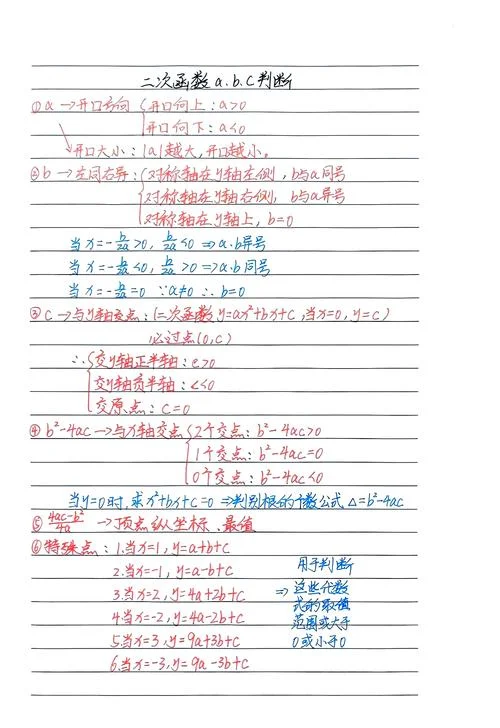 二次函数a.b.c判断
①a→开口方向{开口向上:a>0
开口向下:a<0
开口大小:|a|越大,开口越小。
②b→左同右异:{对称轴在y轴左侧,b与a同号
对称轴在y轴右侧,b与a异号
对称轴在y轴上,b=0
当x=-b/2a>0,b/2a<0⇒a.b异号
当x=-b/2a<0,b/2a>0⇒a.b同号
当x=-b/2a=0 ∵a≠0 ∴b=0
③c→与y轴交点:(二次函数y=ax²+bx+c,当x=0,y=c)
必过点(0,c)
∴{交y轴正半轴:c>0
交y轴负半轴:c<0
交原点:c=0
④b²-4ac→与x轴交点{2个交点:b²-4ac>0
1个交点:b²-4ac=0
0个交点:b²-4ac<0
当y=0时,求x²+bx+c=0⇒判别根的个数公式△=b²-4ac
⑤4ac-b²/4a→顶点纵坐标、最值
⑥特殊点:1.当x=1,y=a+b+c
2.当x=-1,y=a-b+c
3.当x=2,y=4a+2b+c
4.当x=-2,y=4a-2b+c
5.当x=3,y=9a+3b+c
6.当x=-3,y=9a-3b+c
用于判断
⇒这些代数
式的取值
范围或大于
0或小于0